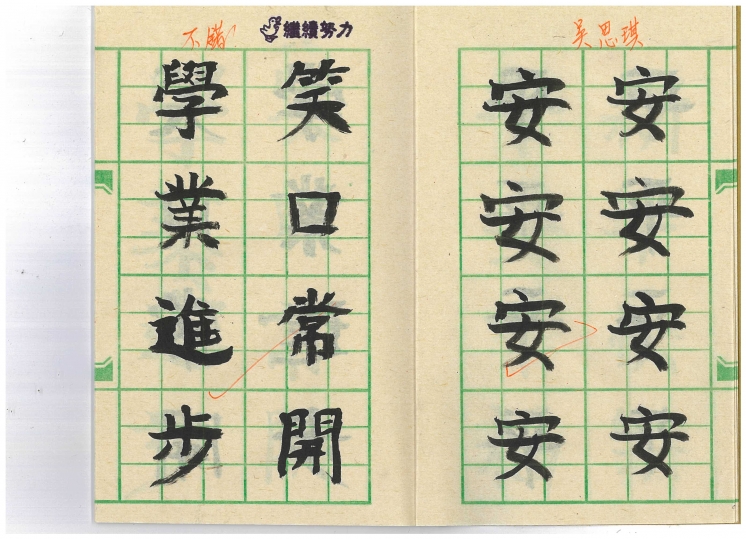 吳思琪
安安安安
安安安安
繼續努力
不錯
笑口常開
學業進步